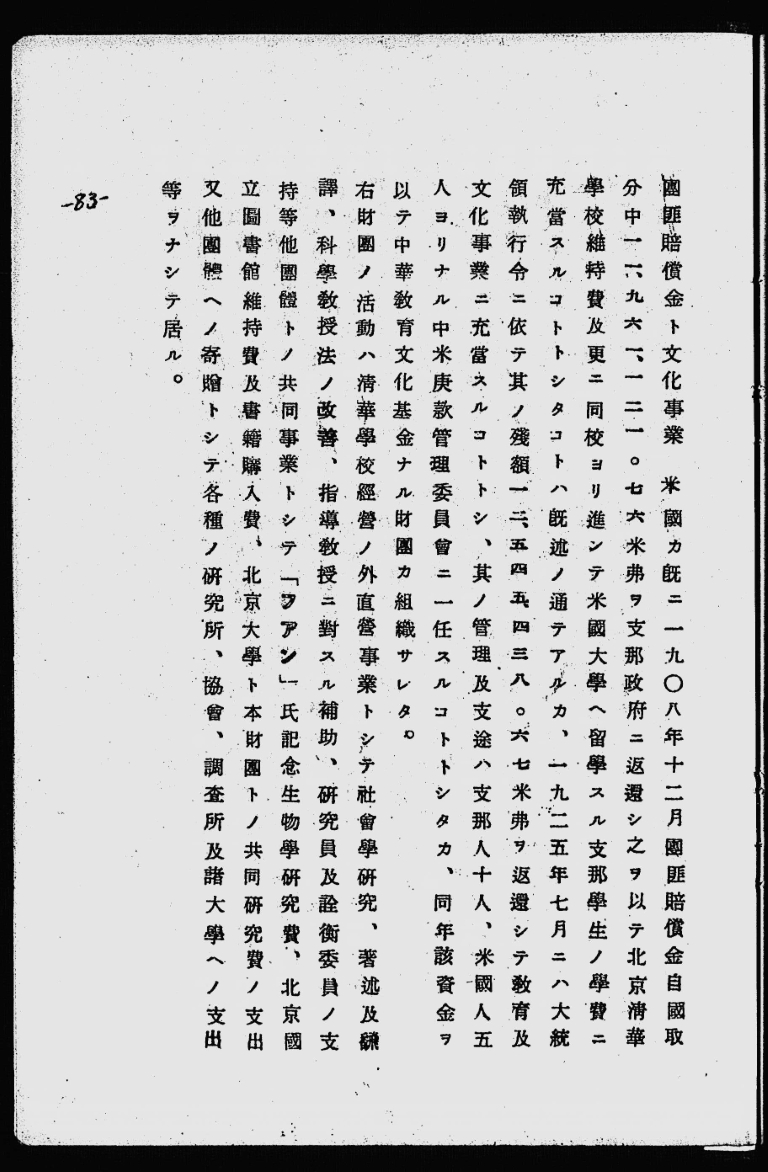 團匪賠償金ト文化事業　米國カ旣ニ一九〇八年十二月團匪賠償金自國取
分中一一、九六一、一二一。七六米弗ヲ支那政府ニ返還シ之ヲ以テ北京淸華
學校維持費及更ニ同校ヨリ進ンテ米國大學ヘ留學スル支那學生ノ學費ニ
充當スルコトトシタコトハ旣述ノ通テアルカ、一九二五年七月ニハ大統
領執行令ニ依テ其ノ殘額一二、五四五、四三八。六七米弗ヲ返還シテ敎育及
文化事業ニ充當スルコトトシ、其ノ管理及支途ハ支那人十人、米國人五
人ヨリナル中米庚款管理委員會ニ一任スルコトトシタカ、同年該資金ヲ
以テ中華敎育文化基金ナル財團カ組織サレタ。
右財團ノ活動ハ淸華學校經營ノ外直營事業トシテ社會學硏究、著述及飜
譯、科學敎授法ノ改善、指導敎授ニ對スル補助、硏究員及詮衡委員ノ支
持等他團體トノ共同事業トシテ「フアン」氏記念生物學硏究費、北京國
立圖書館維持費及書籍購入費、北京大學ト本財團トノ共同硏究費ノ支出
又他團體ヘノ寄贈トシテ各種ノ硏究所、協會、調査所及諸大學ヘノ支出
等ヲナシテ居ル。
-83-